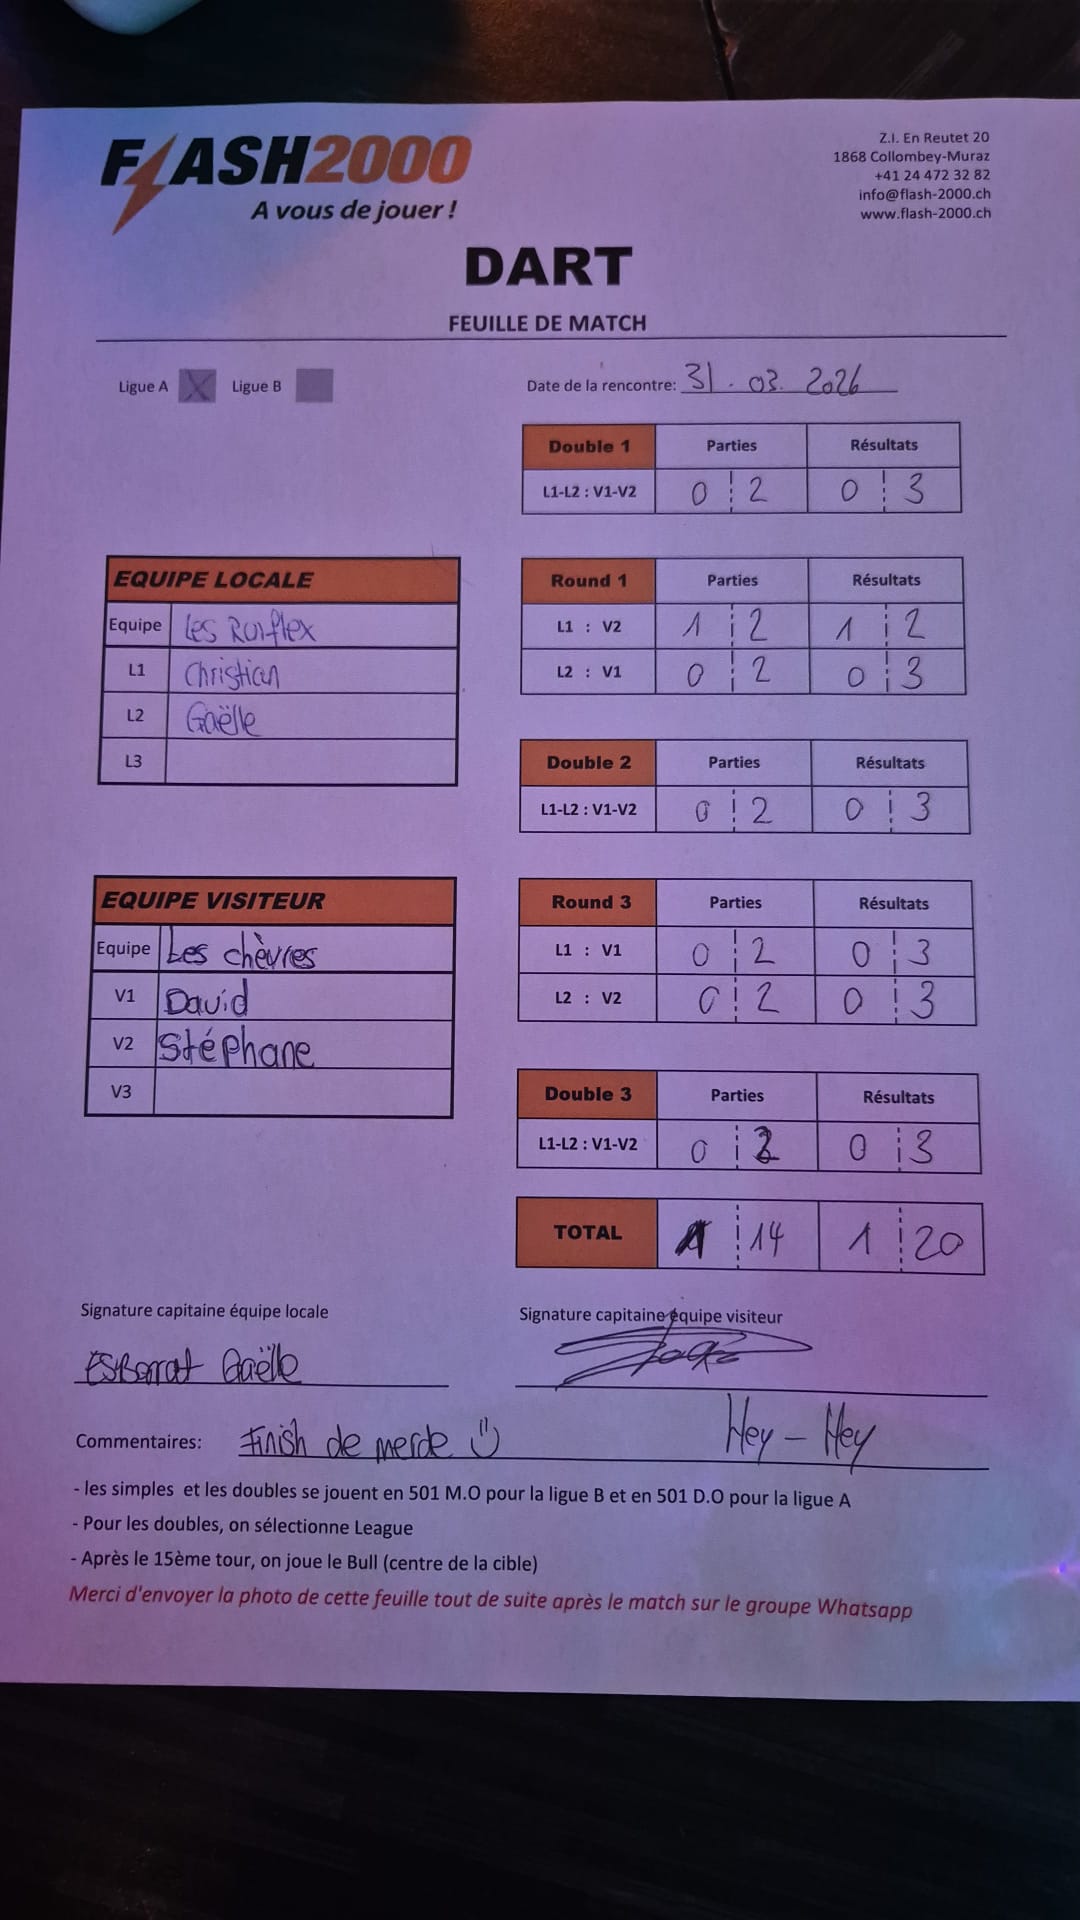 FLASH2000
A vous de jouer !
Z.I. En Reutet 20
1868 Collombey-Muraz
+41 24 472 32 82
info@flash-2000.ch
www.flash-2000.ch
DART
FEUILLE DE MATCH
Ligue A X Ligue B
Date de la rencontre: 31.03.2026
Double 1 Parties Résultats
L1-L2 : V1-V2 0 2 0 3
EQUIPE LOCALE
Equipe Les Roiflex
L1 Christian
L2 Gaëlle
L3
Round 1 Parties Résultats
L1 : V2 1 2 1 2
L2 : V1 0 2 0 3
Double 2 Parties Résultats
L1-L2 : V1-V2 0 2 0 3
EQUIPE VISITEUR
Equipe Les chèvres
V1 David
V2 Stéphane
V3
Round 3 Parties Résultats
L1 : V1 0 2 0 3
L2 : V2 0 2 0 3
Double 3 Parties Résultats
L1-L2 : V1-V2 0 2 0 3
TOTAL 1 14 1 20
Signature capitaine équipe locale
Signature capitaine équipe visiteur
ESBorrat Gaëlle
Commentaires: Finish de merde Hey - Hey
- les simples et les doubles se jouent en 501 M.O pour la ligue B et en 501 D.O pour la ligue A
- Pour les doubles, on sélectionne League
- Après le 15ème tour, on joue le Bull (centre de la cible)
Merci d'envoyer la photo de cette feuille tout de suite après le match sur le groupe Whatsapp